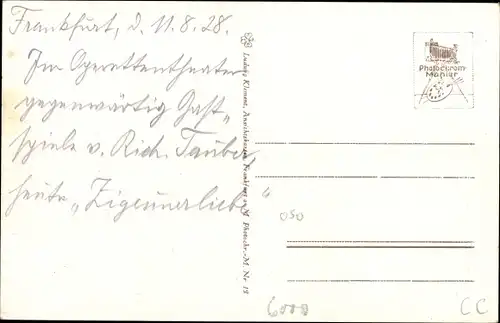 Frankfurt, d. 11.8.28.
Im Operettentheater
gegenwärtig Gast-
spiele v. Rich. Tauber,
heute „Zigeunerliebe“
Ludwig Klement, Frankfurt a. M. Photochr. M. Nr. 18
Photochrom
Manier
050
6000
CC